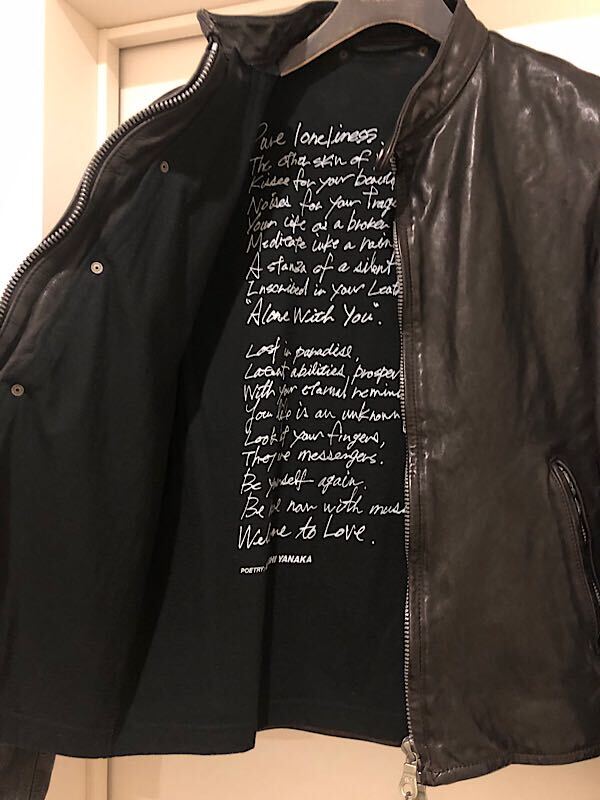 Pure loneliness,
The other skin of
Kisses for your beaut
Noises for your Trage
Your life as a broken
Meditate like a rain
A stanza of a silent
Inscribed in your Leat
"Alone With You".
Lost in paradise,
Latent abilities, prosper
With your eternal
Your life is an unknown
Look of your fingers,
They're messengers.
Be yourself again.
Be now with musi
Welcome to Love.
POETRY HI YANAKA